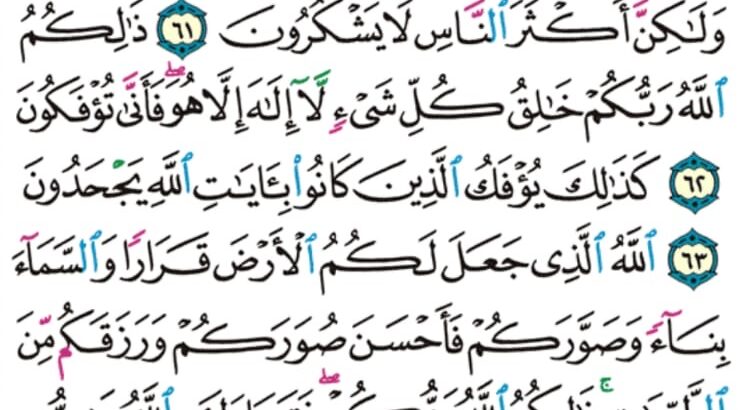 وَلَٰكِنَّ أَكْثَرَ ٱلنَّاسِ لَا يَشْكُرُونَ ٦١ ذَٰلِكُمُ
ٱللَّهُ رَبُّكُمْ خَٰلِقُ كُلِّ شَىْءٍ لَّآ إِلَٰهَ إِلَّا هُوَ ۖ فَأَنَّىٰ تُؤْفَكُونَ
٦٢ كَذَٰلِكَ يُؤْفَكُ ٱلَّذِينَ كَانُوا۟ بِـَٔايَٰتِ ٱللَّهِ يَجْحَدُونَ
٦٣ ٱللَّهُ ٱلَّذِى جَعَلَ لَكُمُ ٱلْأَرْضَ قَرَارًا وَٱلسَّمَآءَ
بِنَآءً وَصَوَّرَكُمْ فَأَحْسَنَ صُوَرَكُمْ وَرَزَقَكُم مِّنَ